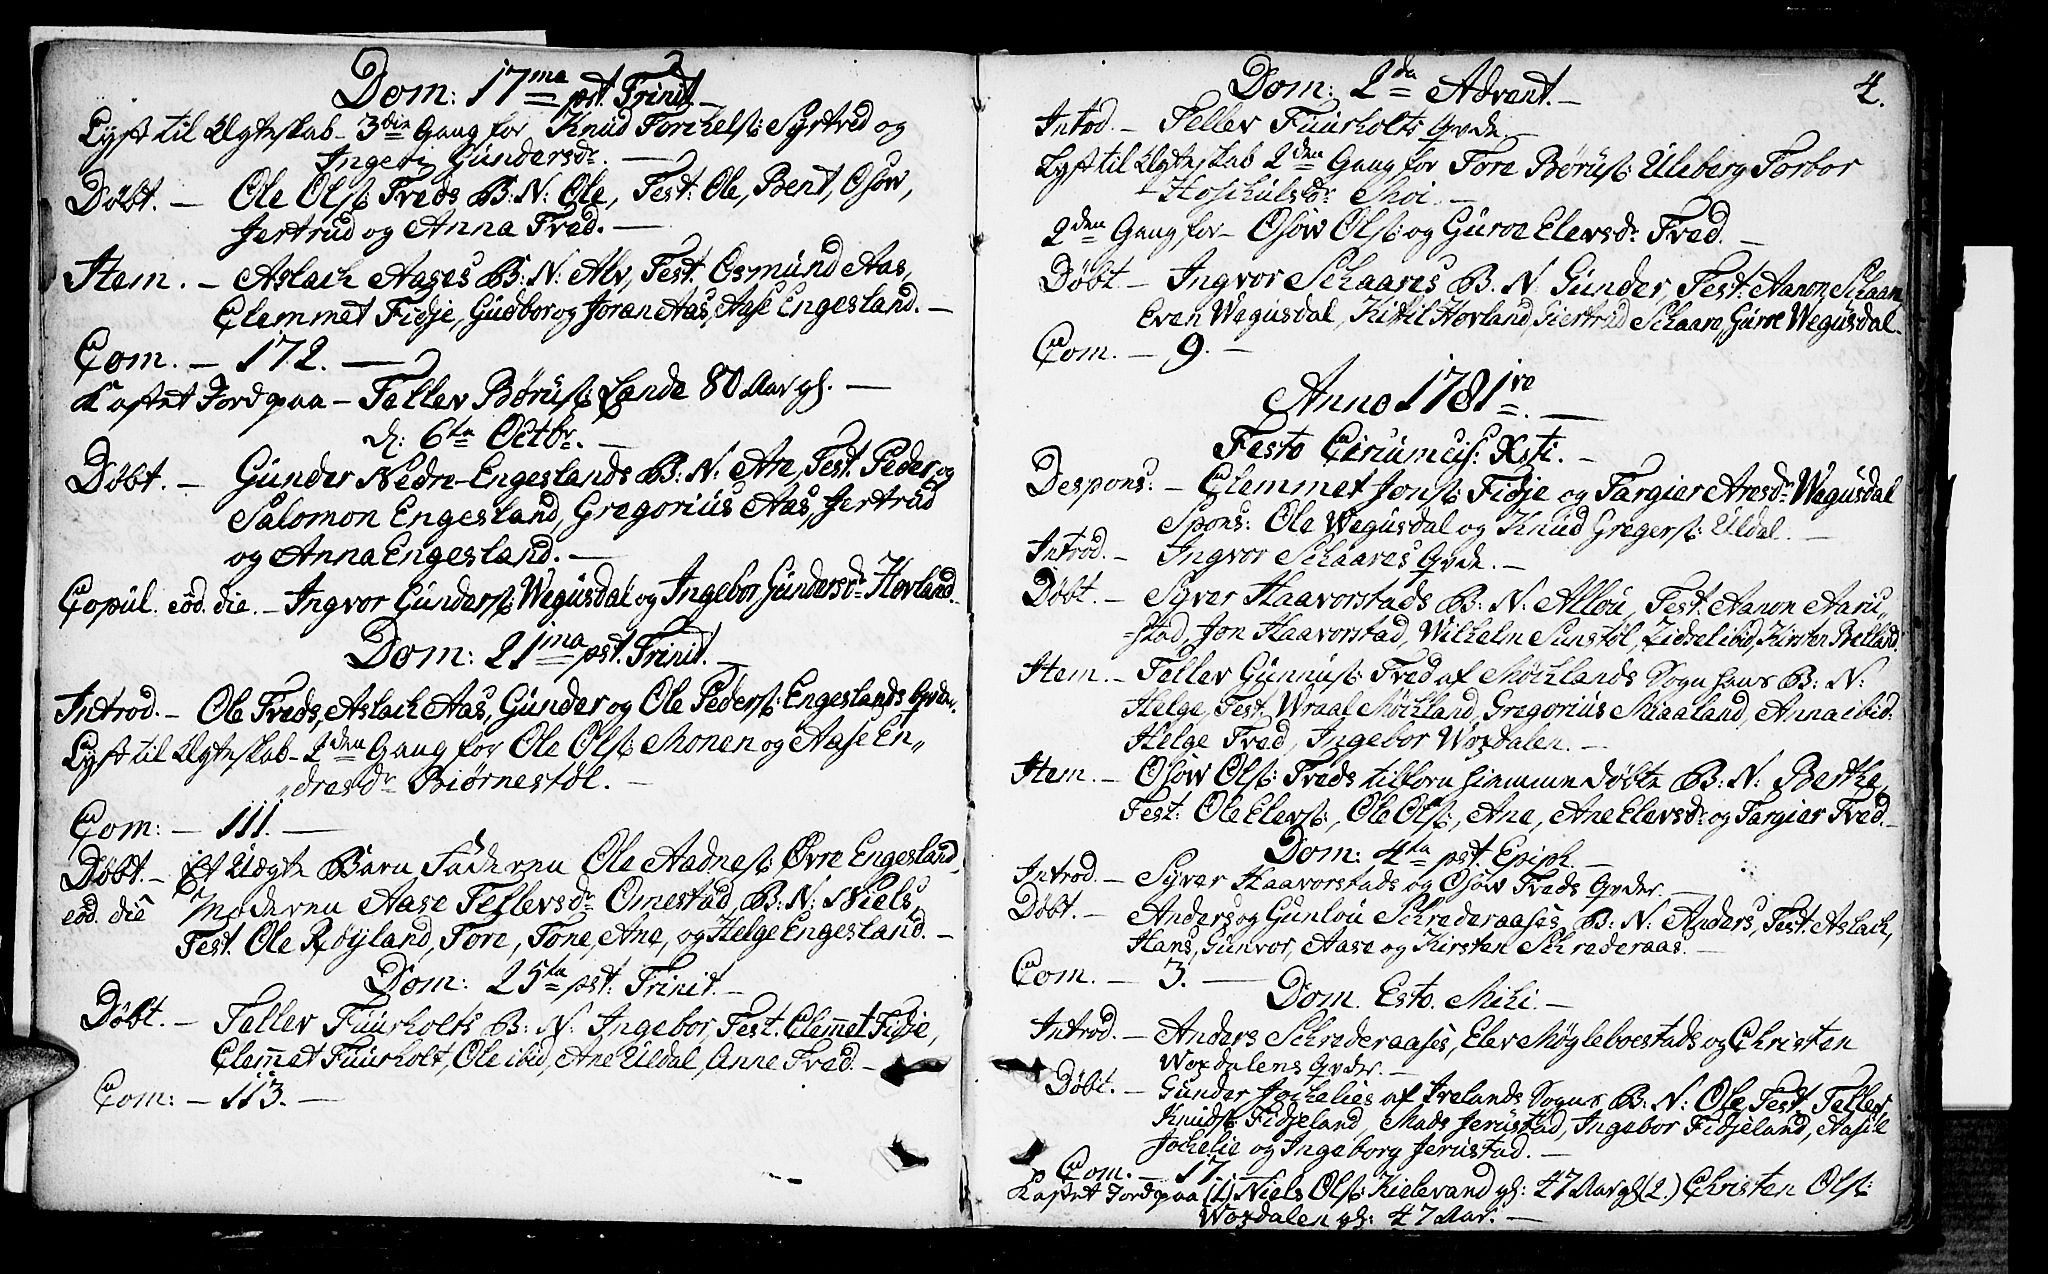 Dom: 17ma pst. Trinit.
Lyst til Ægteskab 3die Gang for Knud Torchelss: Syrtved og
Ingeri Gundersdr. —
Døbt. — Ole Olss: Trads B: N: Ole, Test: Ole, Bent, Osow,
Jertrud og Anna Trad. —
Item. — Aslach Aases B: N: Alv, Test: Osmund Aas,
Clemmet Fidje, Gudbor og Joran Aas, Aase Engesland. —
Com. — 172. —
Kastet Jord paa — Tellev Børuss: Lande 80 Aar gl. —
d: 6ta Octbr. —
Døbt. — Gunder Nedre-Engeslands B: N: Are, Test: Peder og
Salomon Engesland, Gregorius Aas, Jertrud
og Anna Engesland. —
Copul. eod. die. — Ingvor Gunderss: Wegusdal og Ingebor Gundersdr Hovland.
Dom: 21ma pst. Trinit. —
Introd. — Ole Trads, Aslach Aas, Gunder og Ole Pederss: Engeslands Qvdr.
Lyst til Ægteskab — 2den Gang for Ole Olss: Monen og Aase En„
„dresdr Biørnestøl. —
Com: — 111. —
Døbt. — Et Uægte Barn Faderen Ole Aadness: Øvre Engesland,
eod. die Moderen Aase Tellevsdr Omestad, B: N: Niels,
Test. Ole Røyland, Tore, Tone, Ane, og Helge Engesland. —
Dom: 25ta pst: Trinit. —
Døbt. — Tellev Fuurholts B: N: Ingebor, Test. Clemet Fidje,
Clemet Fuurholt, Ole ibid, Ane Uldal, Anne Trad. —
Com: — 113. —
4.
Dom: 2da Advent. —
Introd. — Tellev Fuurholts Qvde. —
Lyst til Ægteskab 2den Gang for Tore Børuss: Uleberg Torbor
Hoskulsdr Moi. —
2den Gang for — Osow Olss: og Guroe Elevsdr Trad. —
Døbt — Ingvor Schaares B. N: Gunder, Test: Aanon Schaare
Even Wegusdal, Kittil Hovland, Giertrud Schaare, Guroe Wegusdal.
Com. — 9. —
Anno 1781re. —
Festo Circumcis: Xsti. —
Despons. — Clemmet Jonss: Fidje og Targier Aresdr Wegusdal
Spons: Ole Wegusdal og Knud Gregerss: Uldal. —
Introd. — Ingvor Schaares Qvde. —
Døbt. — Syver Haavorstads B: N: Allou, Test: Aanon Aaru„
„stad, Jon Haavorstad, Wilhelm Sunstøl, Zidsel ibid, Kirsten Belland.
Item. — Tellev Gunnuss: Trad af Mochlands Sogn hans B: N:
Helge, Test. Wraal Mochland, Gregorius Skaaland, Anna ibid:
Helge Trad, Ingebor Woxdalen. —
Item. — Osow Olss: Trads tilforn hiemme døbte B: N: Berthe,
Test: Ole Elevss:, Ole Olss:, Ane, Ane Elevsdr og Targier Trad. —
Dom: 4ta pst. Epiph. —
Introd. — Syver Haavorstads og Osow Trads Qvder. —
Døbt. — Anders og Gunlou Schrederaases, B: N: Anders, Test: Aslach,
Hans, Gunvor, Aase og Kirsten Schrederaas. —
Com. — 3. —
Dom. Esto. Mihi. —
Introd. — Anders Schrederaases, Elev Møgleboestads og Christen
Woxdalens Qvder. —
Døbt. — Gunder Jochelies af Ivelands Sogns B: N: Ole, Test. Tellev
Knudss: Fidjeland, Mads Jerustad, Ingebor Fidjeland, Aasil
Jochelie og Ingeborg Jerustad. —
Com. — 17. —
Kastet Jord paa (1.) Niels Olss: Kielevand gl: 47 Aar gl (2.) Christen Olss:
Woxdalen gl: 47 Aar. —